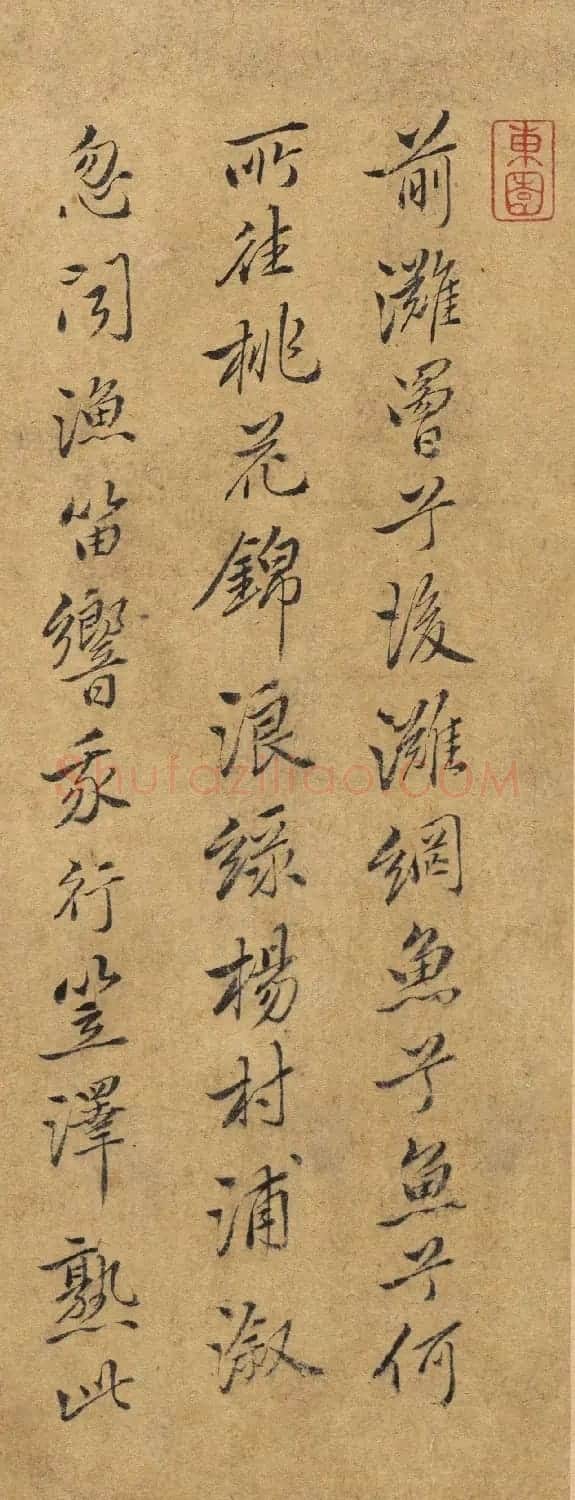 東園
前灘罾兮後灘網魚兮魚兮何
所往桃花錦浪綠楊村浦漵
忽聞漁笛響我行笠澤熟此
Shufaziliao.COM